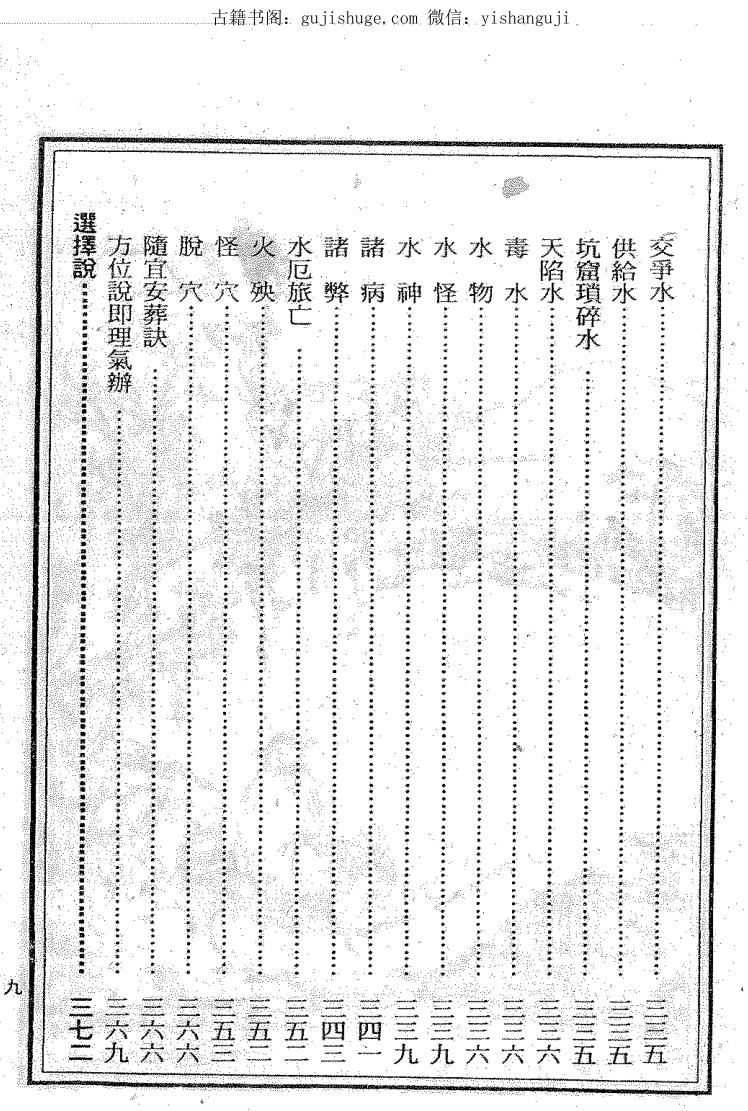 古籍书阁：gujishuge.com 微信：yishanguji
交爭水 三三五
供給水 三三五
坑窟瑣碎水 三三五
天陷水 三三六
毒水 三三六
水物 三三六
水怪 三三九
水神 三三九
諸病 三四一
諸弊 三四三
水厄旅亡 三五二
火殃 三五二
怪穴 三五三
脫穴 三六六
隨宜安葬訣 三六六
方位說即理氣辦 三六九
選擇說 三七二
九